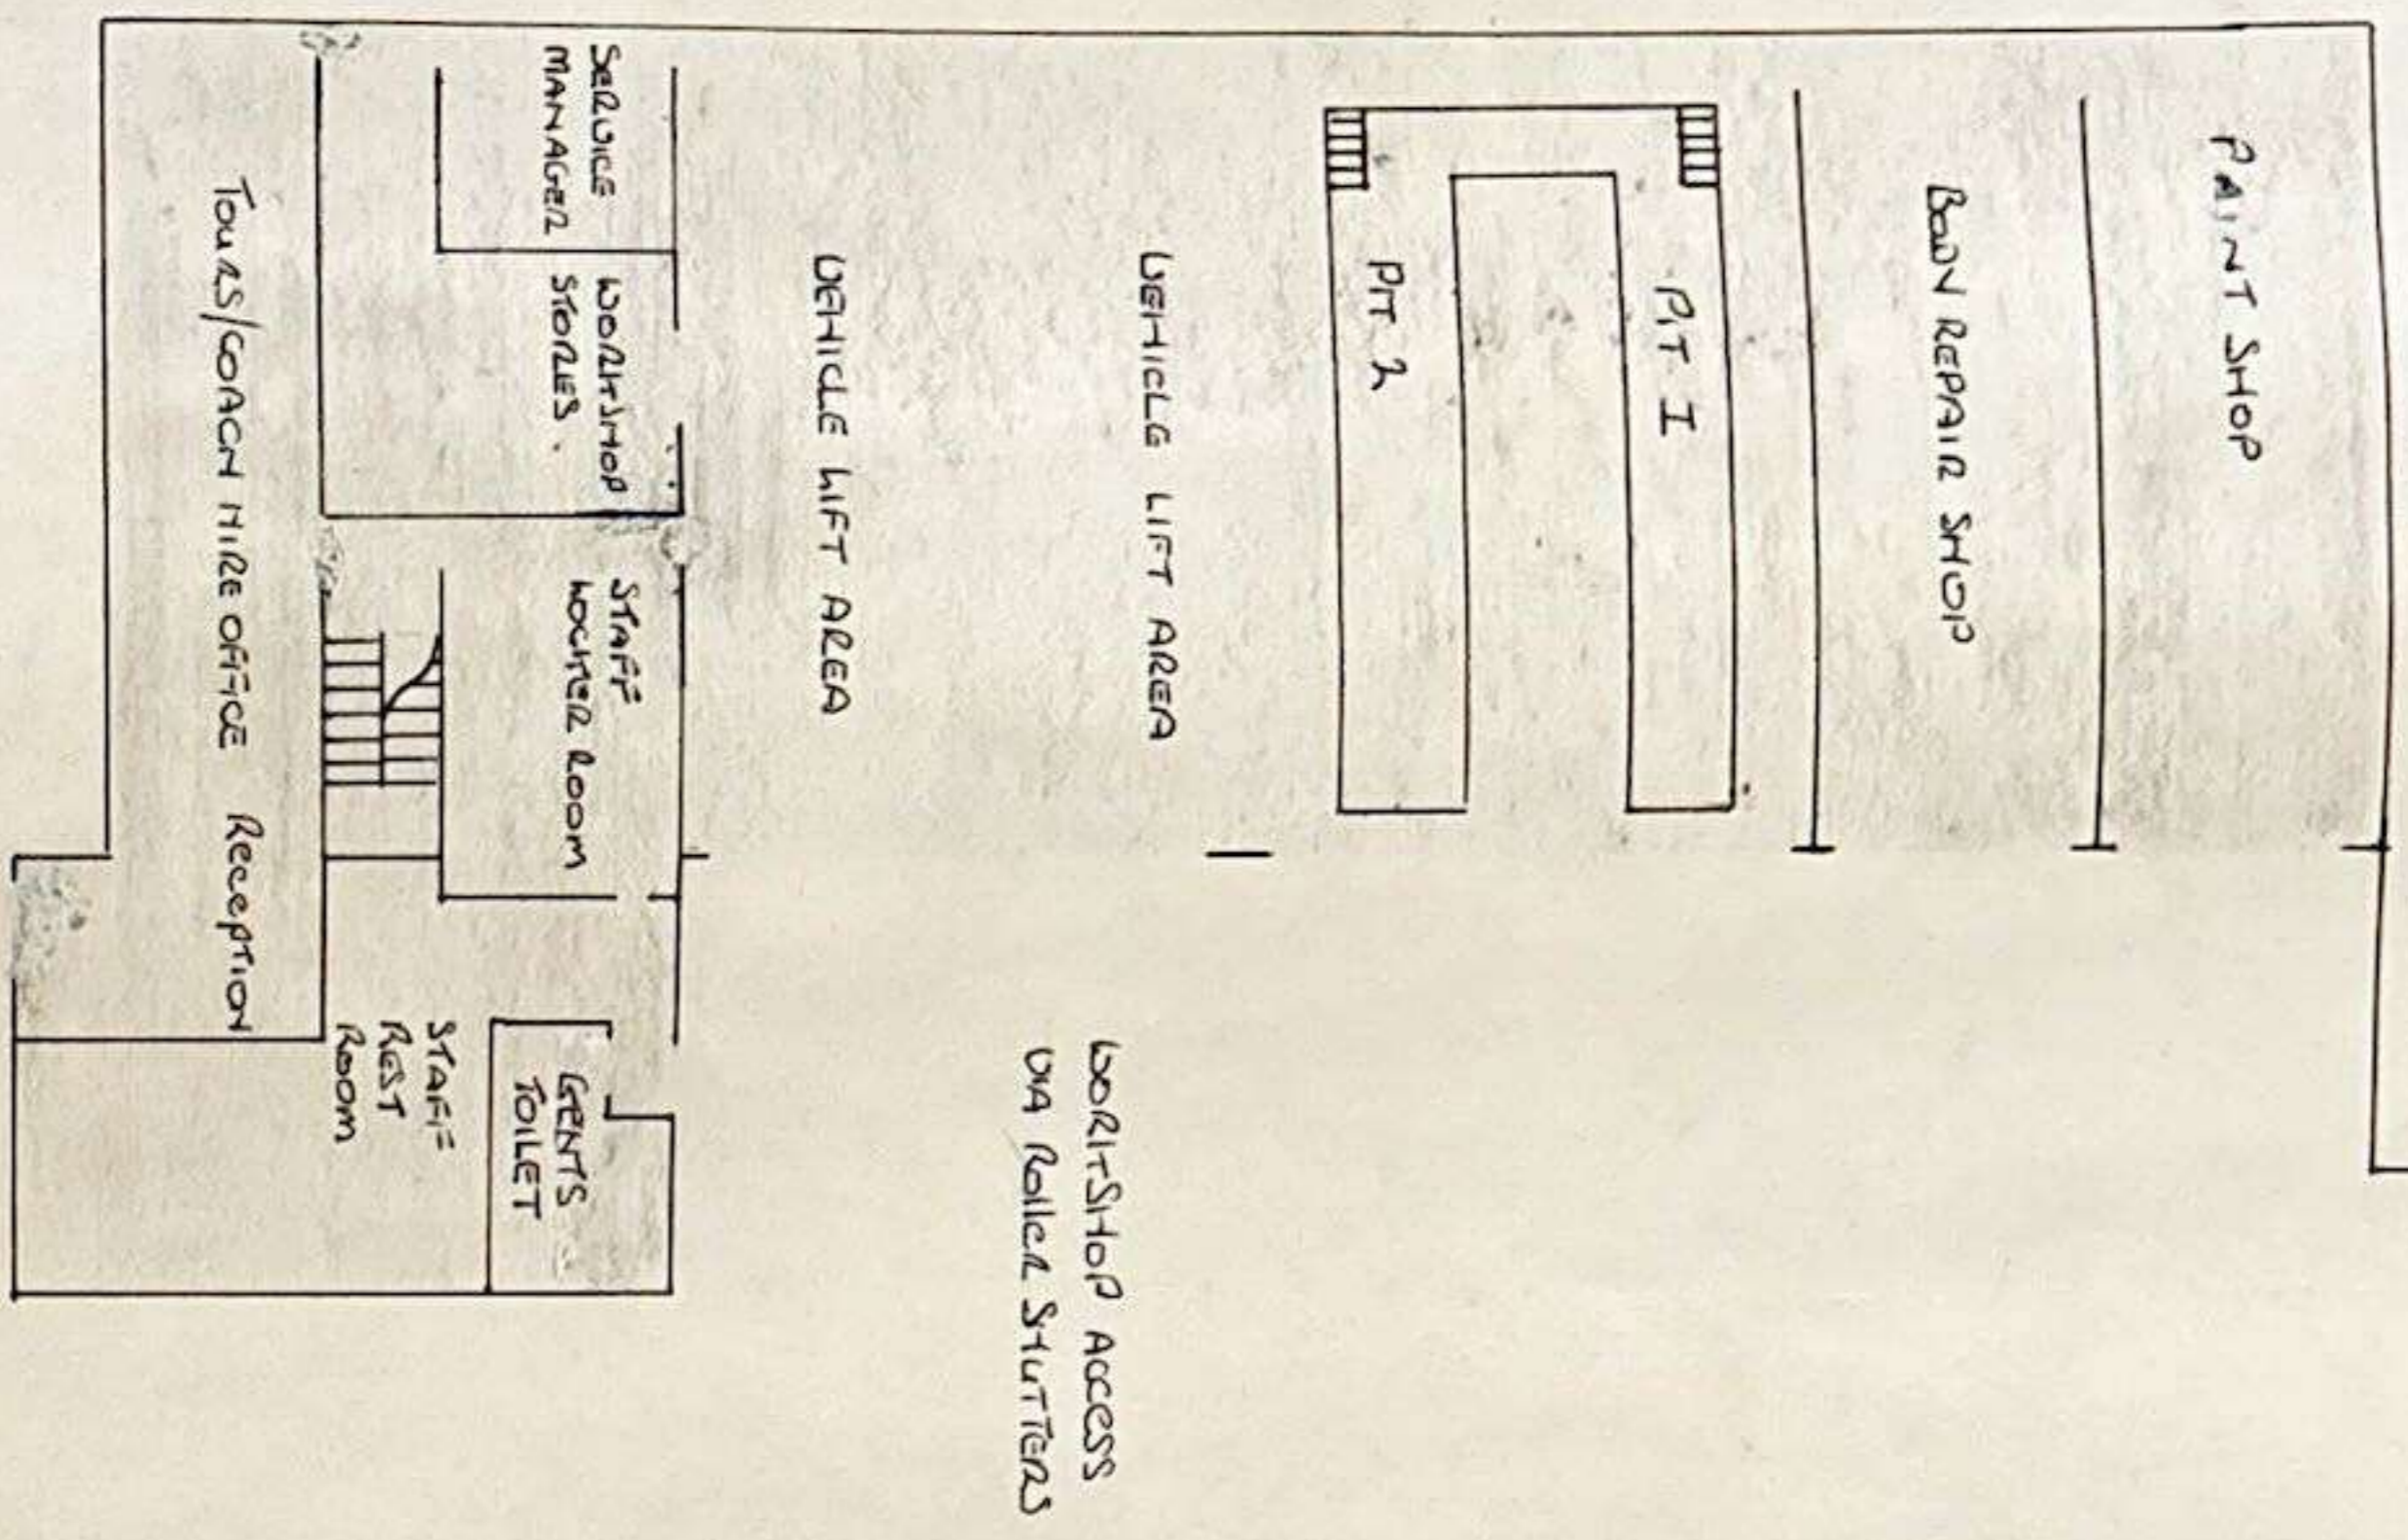 PAINT SHOP
BODY REPAIR SHOP
PIT 1
PIT 2
VEHICLE LIFT AREA
VEHICLE LIFT AREA
WORKSHOP ACCESS
VIA ROLLER SHUTTERS
SERVICE
MANAGER
WORKSHOP
STORES.
STAFF
LOCKER ROOM
GENTS
TOILET
STAFF
REST
ROOM
TOURS/COACH HIRE OFFICE Reception